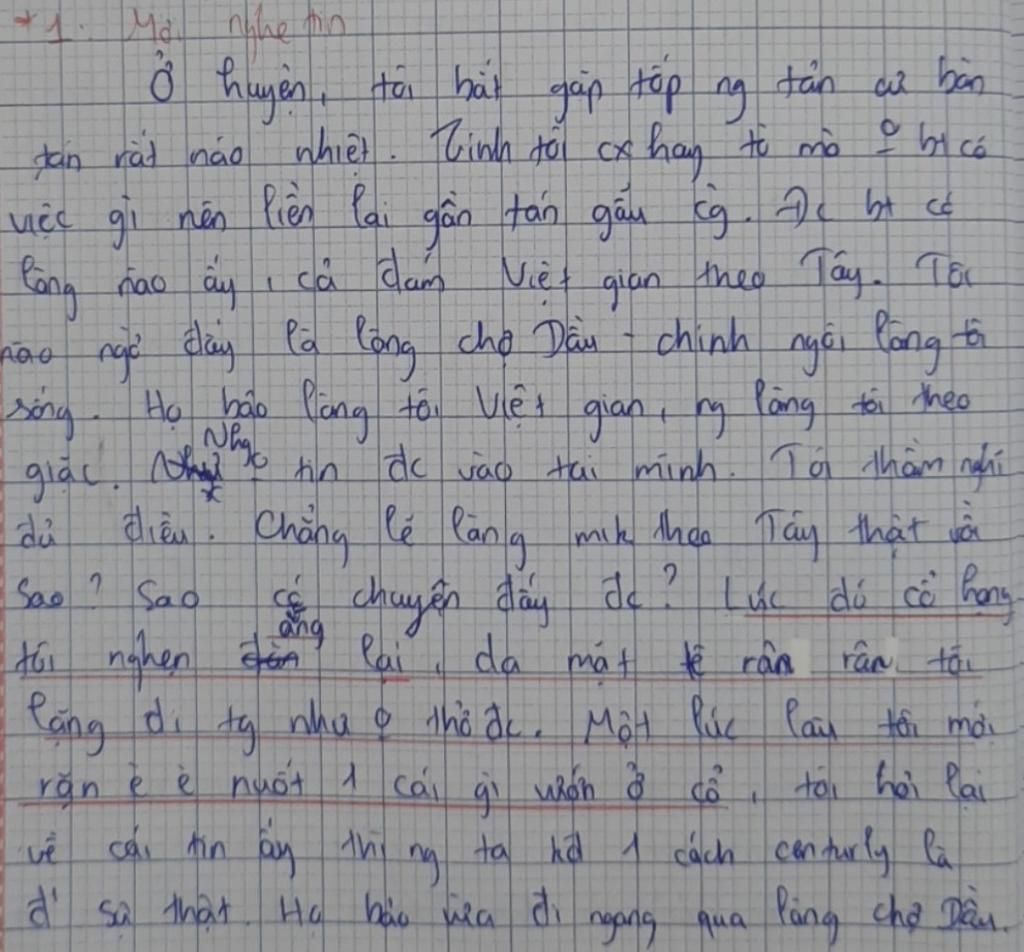 * 1. Mới nghe tin
Ở huyện, tôi bắt gặp tốp ng tản cư bàn
tán rất náo nhiệt. Tính tôi cx hay tò mò o bt có
việc gì nên liền lại gần tán gẫu cg. Đc bt có
làng nào ấy, cả đám Việt gian theo Tây. Tôi
nào ngờ đây là làng chợ Dầu - chính ngôi làng tôi
sống. Họ bảo làng tôi Việt gian, ng làng tôi theo
giặc. tin đc vào tai mình. Tôi thầm nghĩ
đủ điều. Chẳng lẽ làng mik theo Tây thật rồi
sao? Sao có chuyện đấy đc? Lúc đó cổ họng
tôi nghẹn ắng lại, da mặt tê rân rân. tôi
lặng đi tg như o thở đc. Một lúc lâu tôi mới
rặn è è nuốt 1 cái gì vướn ở cổ, tôi hỏi lại
về cái tin ấy thì ng ta kđ 1 cách centurly là
đ' sự thật. Họ bảo vừa đi ngang qua làng chợ Dầu.